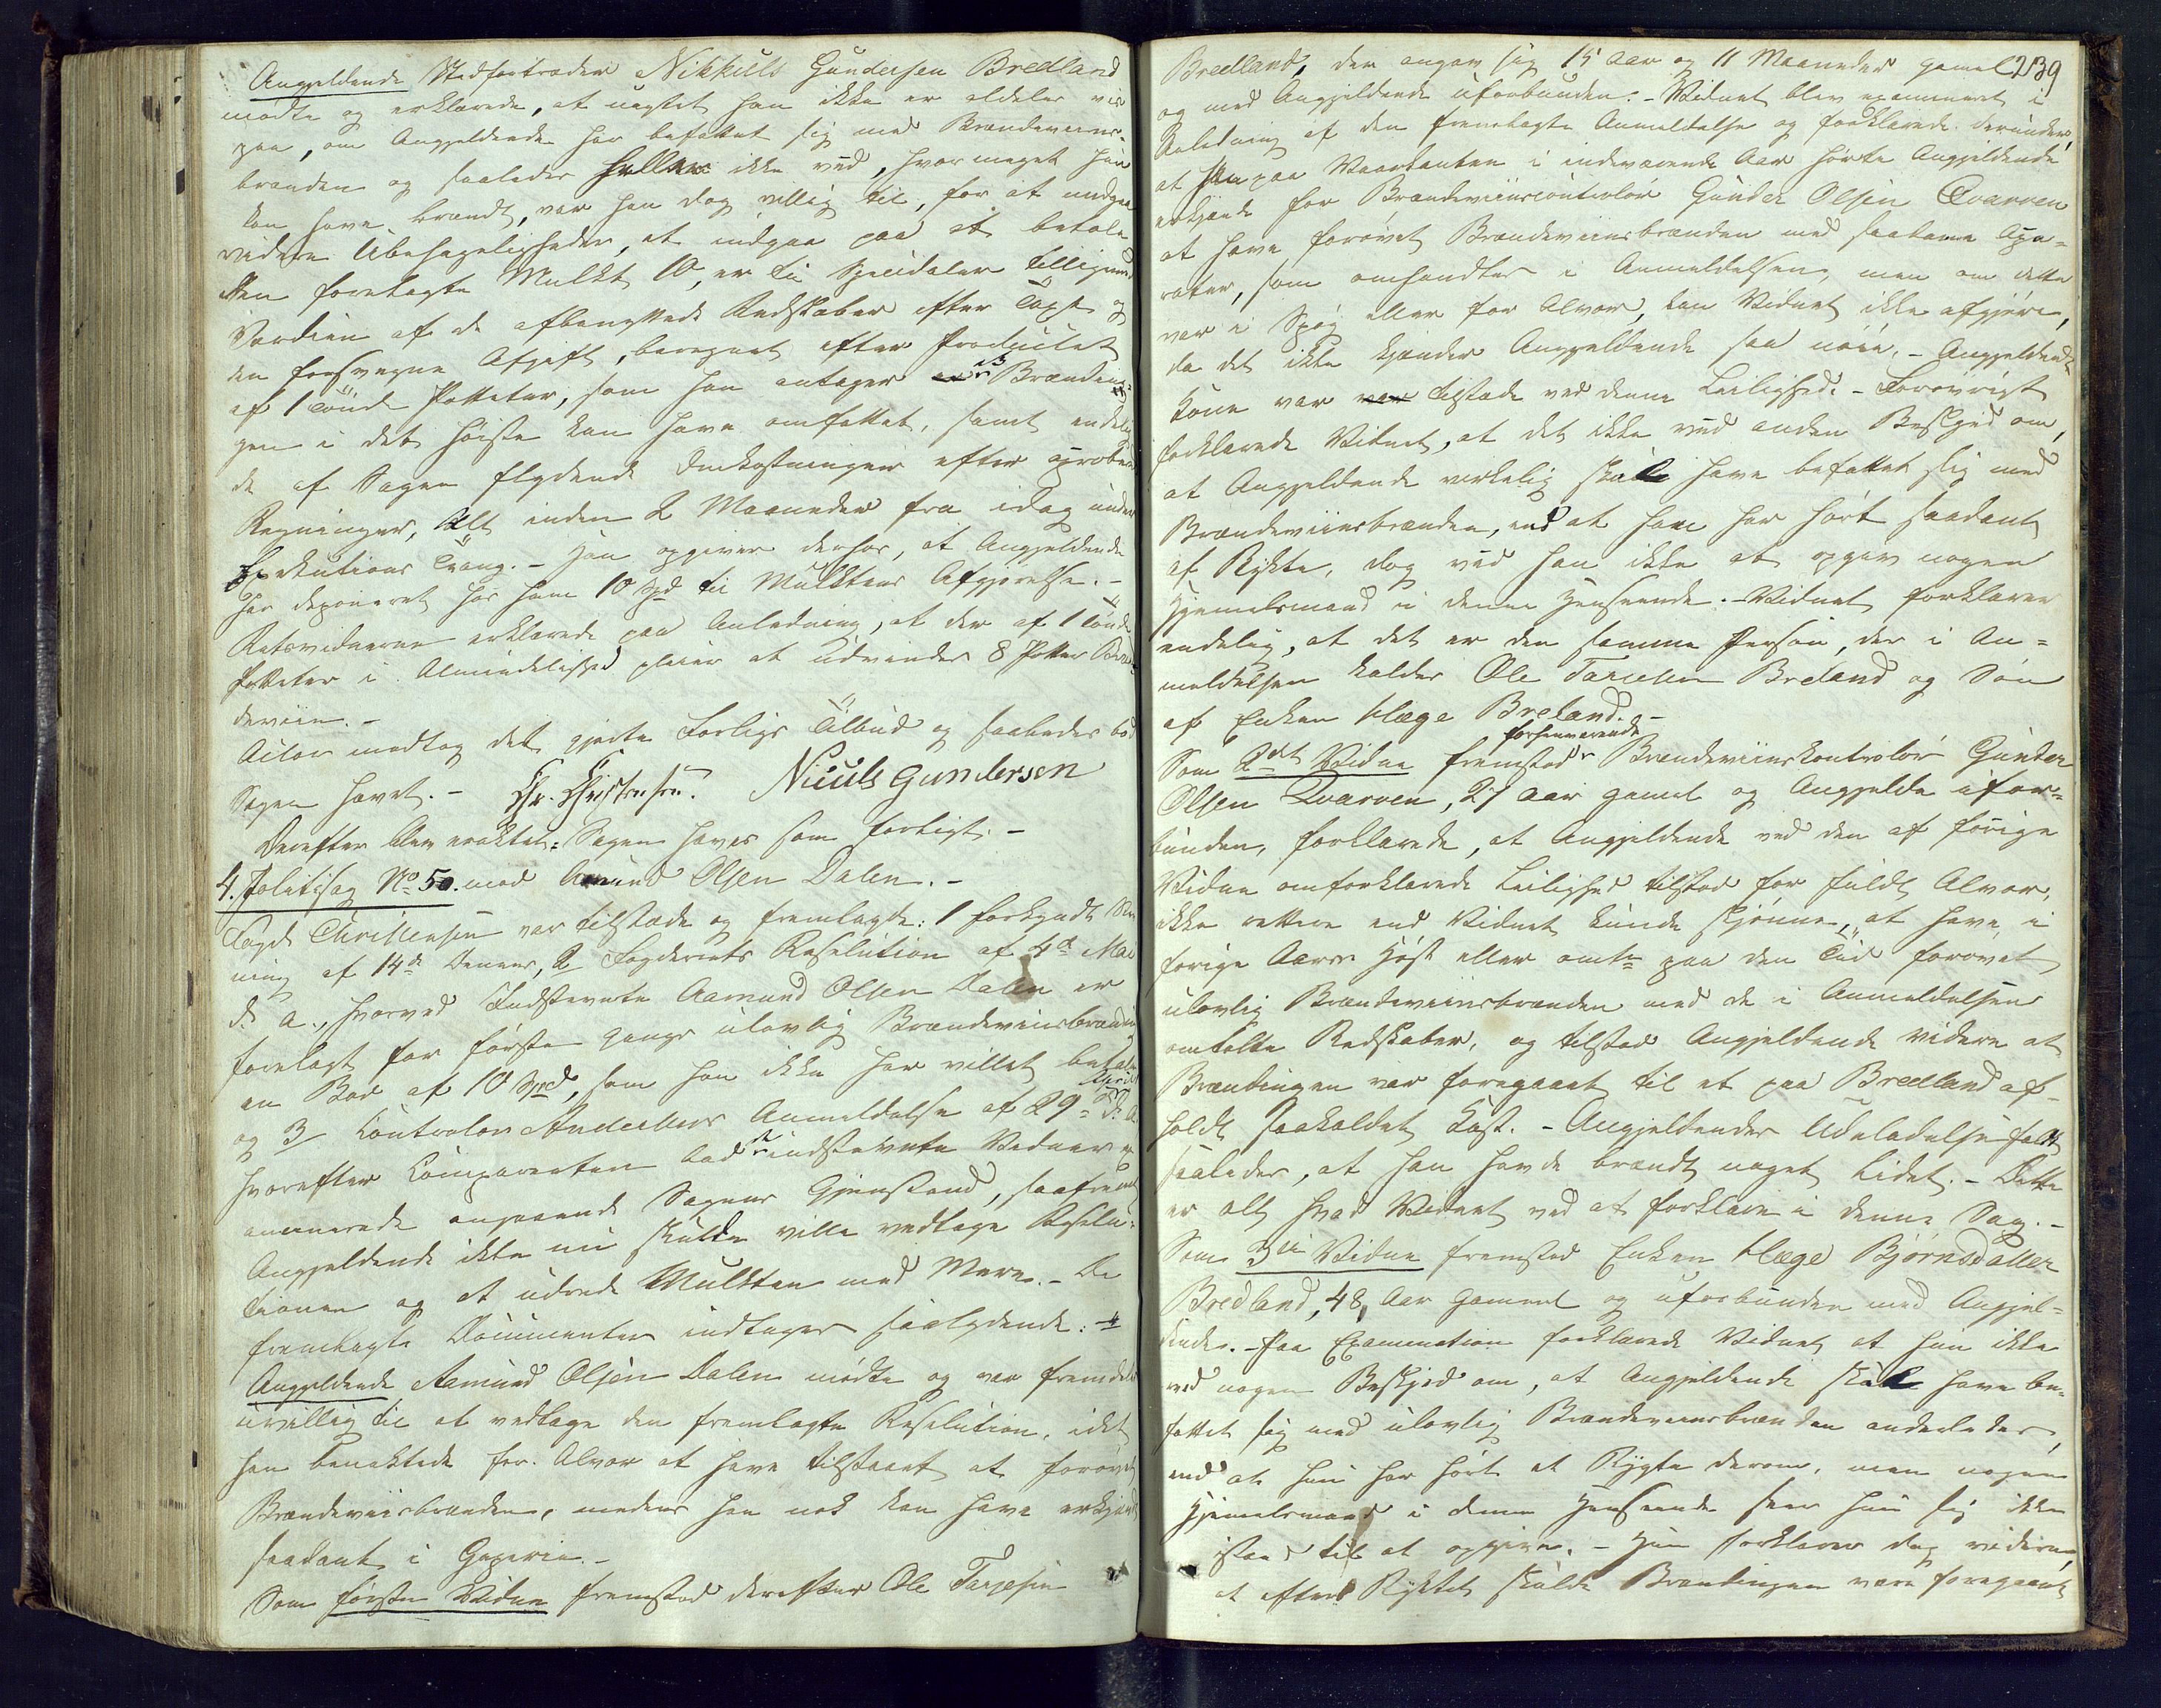 Angjeldende Stedfortræder Nikkuls Gundersen Bredland
mødte og erklærede, at uagtet han ikke er aldeles vis
paa, om Angjeldende har befattet sig med Brændeviins-
brænden og saaledes heller ikke véd, hvor meget han
kan have brændt, var han dog villig til, for at undgaa
videre Ubehageligheder, at indgaa paa at betale
den forelagte Mulkt 10, er ti Speciedaler tilligemed
Værdien af de afbenyttede Redskaber efter Taxt og
den forsvegne Afgift, beregnet efter Productet
af 1 Tønde Poteter, som han antager at Brændin-
gen i det høieste kan have omfattet, samt endelig
de af Sagen flydende Omkostninger efter approberede
Regninger, Alt inden 2 Maaneder fra idag under
Exekutions Tvang. - Han opgiver derhos, at Angjeldende
har deponeret hos ham 10 Spd til Mulktens Afgjørelse. -
Retsvidnerne erklærede paa Anledning, at der af 1 Tønde
Poteter i Almindelighed pleier at udvindes 8 Potter Bræn-
deviin. -
Actor modtog det gjorte Forligs Tilbud og saaledes bad
Sagen hævet. - Chr. Christensen. Niculs Gundersen
Derefter blev eragtet: Sagen hæves som forligt. -
4. Politisag No 50. mod Amund Olsen Dalen. -
Fogd Christensen var tilstede og fremlagte: 1 forkyndt Stev-
ning af 14de Dennes, 2 Fogderiets Resolution af 4de Mai
d. A., hvorved Indstevnte Aamund Olsen Dalen er
forelagt for første Gangs ulovlig Brændeviinsbrænding
en Bod af 10 Spd, som han ikke har villet betale
og 3 Controlør Andersens Anmeldelse af 29de April d. A.
hvorefter Comparenten bad indstevnte Vidner ex-
aminerede angaaende Sagens Gjenstand, saafremt
Angjeldende ikke nu skulde ville vedtage Resolu-
tionen og at udrede Mulkten med Mere. - De
fremlagte Documenter indtages saalydende:
Angjeldende Aamund Olsen Dalen mødte og var fremdeles
uvillig til at vedtage den fremlagte Resolution, idet
han benægtede for Alvor at have tilstaaet at forøvet
Brændeviinsbrænden, medens han nok kan have erkjendt
saadant i Gjækeri. -
Som første Vidne fremstod derefter Ole Tarjesen
239
Bredland, der angav sig 15 Aar og 11 Maaneder gammel
og med Angjeldende uforbunden. - Vidnet blev examineret i
Anledning af den fremlagte Anmeldelse og forklarede derunder,
at han paa Vaarkanten i indeværende Aar hørte Angjeldende
erkjende for Brændeviinscontrolør Gunder Olsen Qvarven
at have forøvet Brændeviinsbrænden med saadanne Appa-
rater, som omhandles i Anmeldelsen, men om dette
var i Spøg eller for Alvor, kan Vidnet ikke afgjøre,
da det ikke kjender Angjeldende saa nøie. - Angjeldendes
Kone var tilstede ved denne Leilighed. - Forøvrigt
forklarede Vidnet, at det ikke véd anden Beskjed om,
at Angjeldende virkelig skal have befattet sig med
Brændeviinsbrænden, end at han har hørt saadant
af Rygte, dog véd han ikke at opgive nogen
Hjemmelsmand i denne Henseende. - Vidnet forklarer
endelig, at det er den samme Person, der i An-
meldelsen kaldes Ole Tarjesen Breland og Søn
af Enken Hæge Breland. -
Som 2det Vidne fremstod forhenværende Brændeviinskontrolør Gunder
Olsen Qvarven, 27 Aar gammel og Angjeldende ufor-
bunden, forklarede, at Angjeldende ved den af forrige
Vidne omforklarede Leilighed tilstod for fuldt Alvor,
ikke rettere end Vidnet kunde skjønne, at have i
forrige Aars Høst eller omtr. paa den Tid forøvet
ulovlig Brændeviinsbrænden med de i Anmeldelsen
omtalte Redskaber, og tilstod Angjeldende videre at
Brændingen var foregaaet til et paa Bredland af-
holdt saakaldet Kast. - Angjeldendes Udeladelse faldt
saaledes, at han havde brændt noget Lidet. - Dette
er alt hvad Vidnet ved at forklare i denne Sag. -
Som 3die Vidne fremstod Enken Hæge Bjørnsdatter
Bredland, 48 Aar gammel og uforbunden med Angjel-
dende. - Paa Examination forklarede Vidnet at hun ikke
ved nogen Beskjed om, at Angjeldende skal have be-
fattet sig med ulovlig Brændeviinsbrænden anderledes,
end at hun har hørt et Rygte derom, men nogen
Hjemmelsmand i denne Henseende seer hun sig ikke
istand til at opgive. - Hun forklarer dog videre,
at efter Rygtet skulde Brændingen være foregaaet